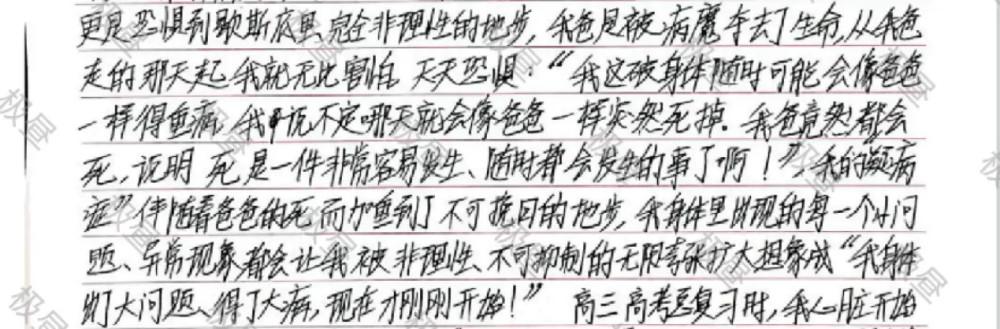 更是恐惧到歇斯底里、完全非理性的地步，我爸是被病魔夺去了生命，从我爸
走的那天起，我就无比害怕、天天恐惧：“我这破身体随时可能会像爸爸
一样得重病，我说不定哪天就会像爸爸一样突然死掉。我爸竟然都会
死，说明 死是一件非常容易发生、随时都会发生的事了啊！”，我的“疑病
症”伴随着爸爸的死而加重到了不可挽回的地步，我身体里出现的每一个小问
题、异常现象都会让我被非理性、不可抑制的无限夸张扩大想象成“我身体
出了大问题、得了大病，现在才刚刚开始！” 高三高考总复习时，我心脏开始
极昼